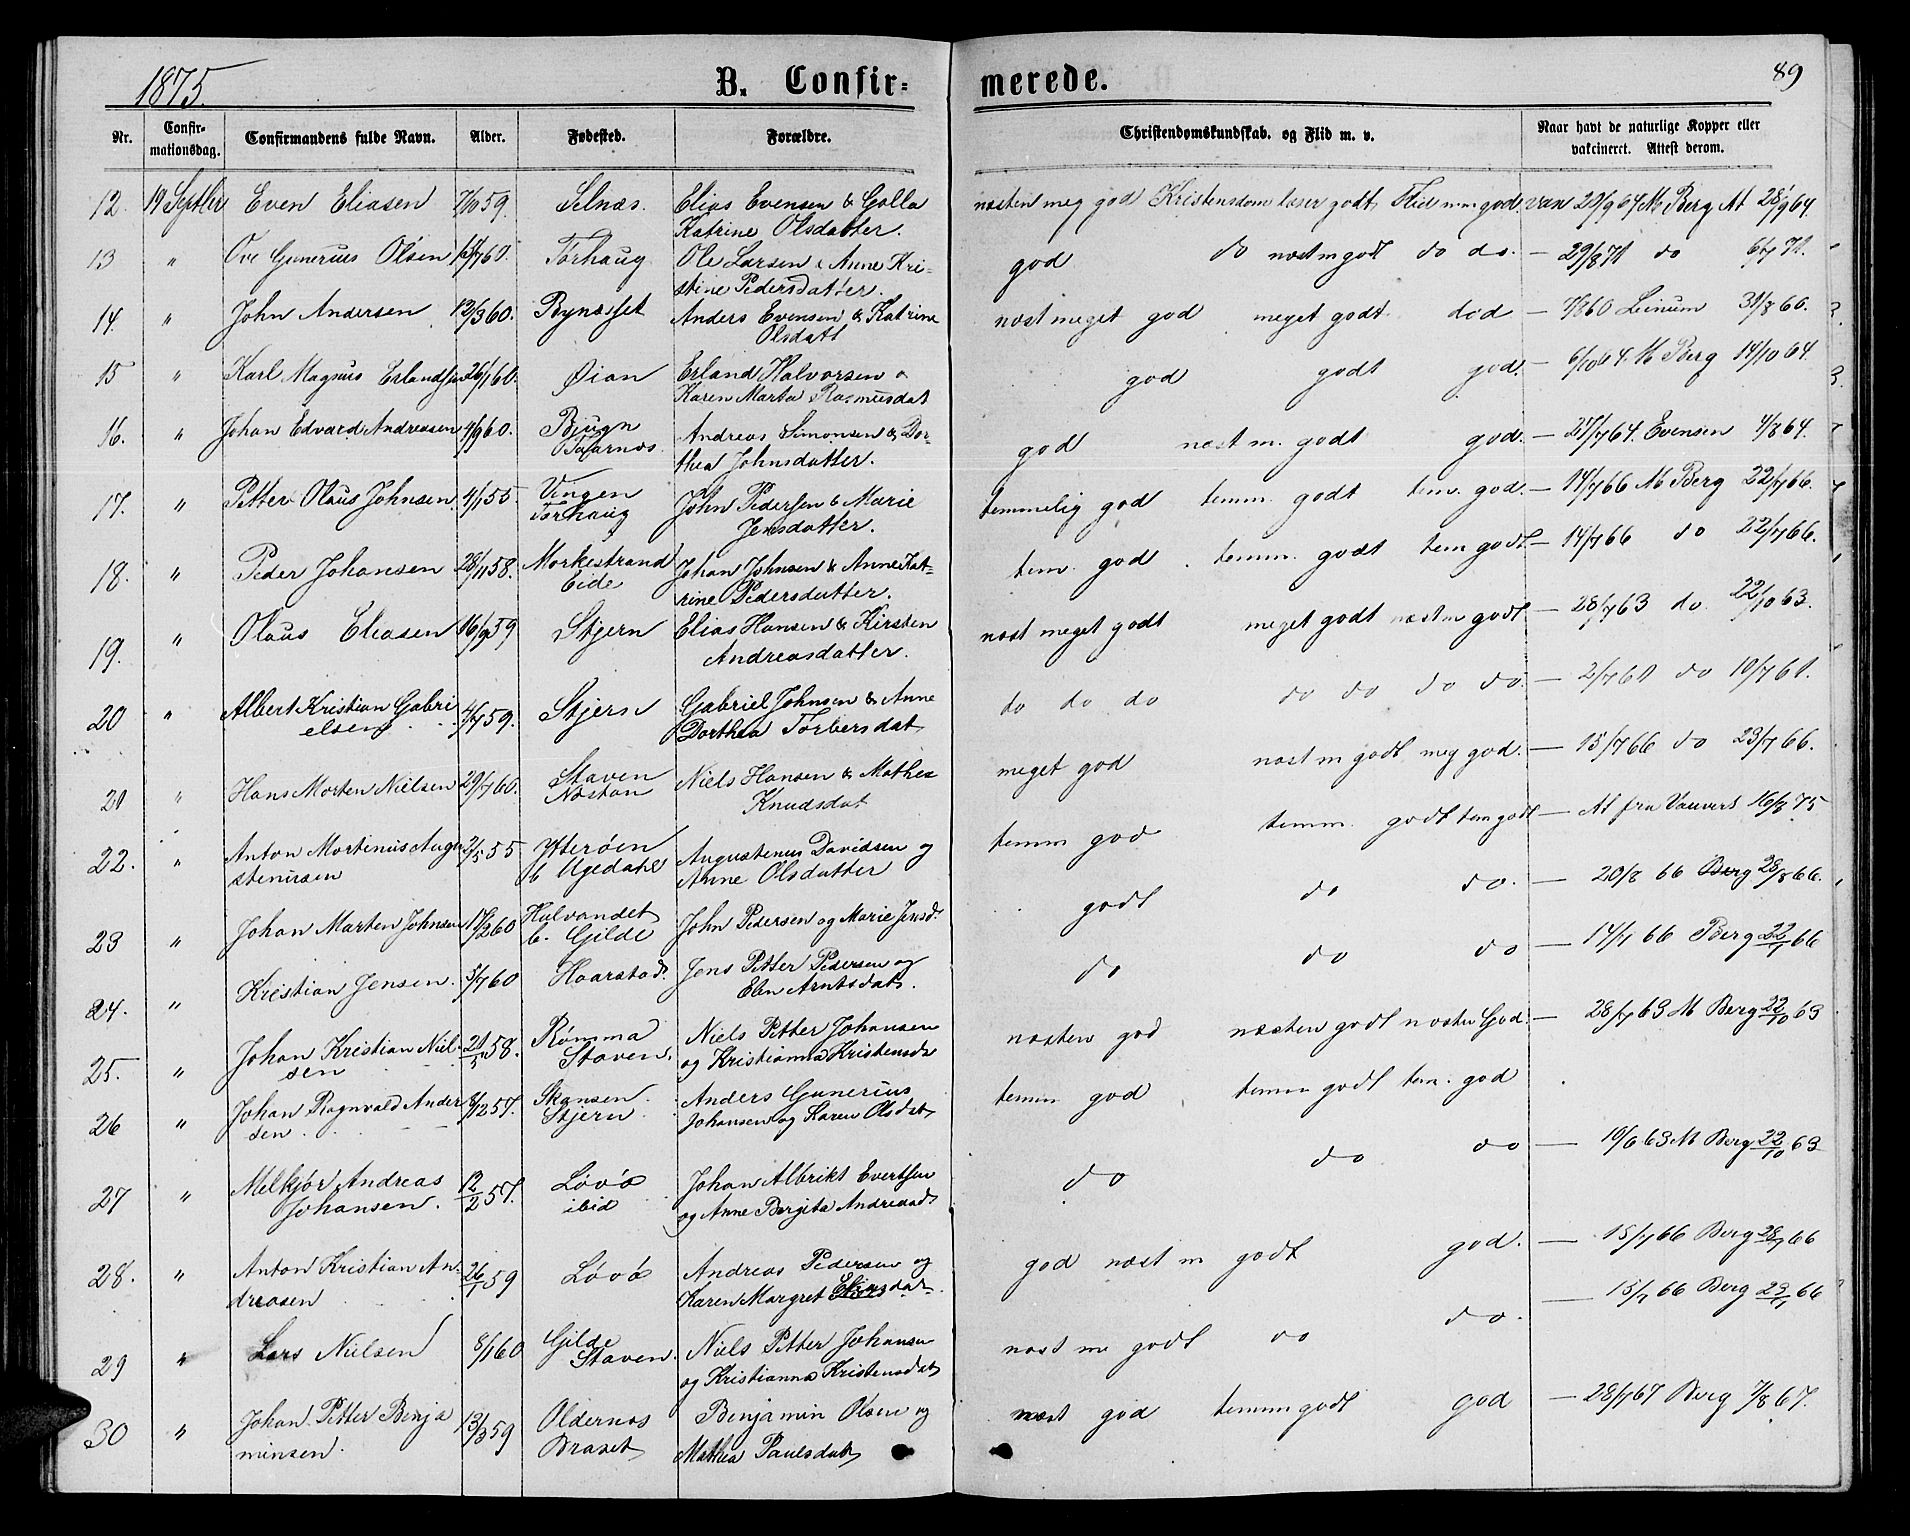 1875.
B. Confir-
merede.
89
Nr.
Confir-
mationsdag.
Confirmandens fulde Navn.
Alder.
Fødested.
Forældre.
Christendomskundskab. og Flid m. v.
Naar havt de naturlige Kopper eller
vakcineret. Attest derom.
12. 19 Septber Even Eliasen 7/10 59. Selnæs. Elias Evensen & Golla
Katrine Olsdatter.
næsten meg god Kristensdom læser godt Flid m m god. vac 29/9 64 M Berg At 28/9 64.
13 " Ove Gunerius Olsen 60. Tørhaug Ole Larsen & Anne Kri-
stine Pedersdatter.
god do næst m godt do do. — 29/8 71 do 6/7 71.
14. " John Andersen 12/3 60. Bynæsset Anders Evensen & Katrine
Olsdatt
næst meget god meget godt do d — 7/8 60 Leinum 31/8 60.
15 " Karl Magnus Erlandsen 26/1 60. Øian Erland Halvorsen &
Karen Marta Rasmusdat
god godt god. — 6/10 64. M Berg 14/10 64.
16. " Johan Edvard Andreasen 4/9 60. Bjugn
Tarnæs. Andreas Simonsen & Dor-
thea Johnsdatter.
god næst m. godt god. — 27/7 64. Evensen 4/8 64.
17. " Petter Olaus Johnsen 4/1 55 Vengen
Tørhaug John Pedersen & Marie
Jensdatter.
temmelig god temm. godt tem. god. — 14/7 66 M Berg 22/7 66.
18. " Peder Johansen 28/11 58. Morkestrand
Eide Johan Johnsen & Anne Kat-
rine Pedersdatter.
tem. god. temm. godt tem godt — 14/7 66 do 22/7 66.
19. " Olaus Eliasen 16/9 59 Stjern Elias Hansen & Kirsten
Andreasdatter.
næst meget godt meget godt næst m godt — 28/7 63 do 22/10 63.
20 " Albert Kristian Gabri
elsen 4/7 59. Stjern Gabriel Johnsen & Anne
Dorthea Torbersdat
do do do do do do do. — 2/7 61 do 10/7 61.
21 " Hans Morten Nielsen 29/7 60. Staven
Næstan Niels Hansen & Mathea
Knudsdat
meget god næst m godt meg god. — 15/7 66 do 23/7 66.
22. " Anton Mortinus Augu
stenusen 2/5 55 Ytterøen
b Ugedahl Augustenus Davidsen og
Anne Olsdatter
temm god temm. godt tem godt — At fra 16/8 75
23 " Johan Marten Johnsen 17/2 60 Halvandet
b. Gilde John Pedersen og Marie Jensd.
godt do do. — 20/8 66 Berg 28/8 66.
24. " Kristian Jensen. 5/7 60 Haarstad. Jens Petter Pedersen og
Elen Arntsdat.
do do do — 14/7 66 Berg 22/7 66
25. " Johan Kristian Niel-
sen 21/5 58. Rømma
Staven. Niels Petter Johansen
og Kristianna Kristensd
næsten god næsten godt næsten God. — 28/7 63 M Berg 22/10 63
26 " Johan Ragnvald Ander
sen. 8/12 57. Skansen.
Stjern Anders Gunerius
Johansen og Karen Olsdat
temm god temm godt tem. god
27 " Melkjør Andreas
Johansen. 12/2 57. Løvø
ibid Johan Albrikt Evertsen
og Anne Bergita Andreasd
do do do — 10/6 63 M Berg 22/10 63
28. " Anton Kristian An-
dreasen 26/1 59 Løvø Andreas Pedersen og
Karen Margret Eliasdat.
god næst m godt god. — 15/7 66 Berg 28/7 66
29 " Lars Nielsen 8/1 60 Gilde
Staven. Niels Petter Johansen
og Kristianna Kristensdat
næst me godt do do. — 15/7 66 Berg 23/7 66
30 " Johan Petter Benja
minsen. 13/3 59 Oldernæs
Braset Benjamin Olsen og
Mathea Paulsdat
næst god temm godt god — 28/7 67 Berg 7/8 67.